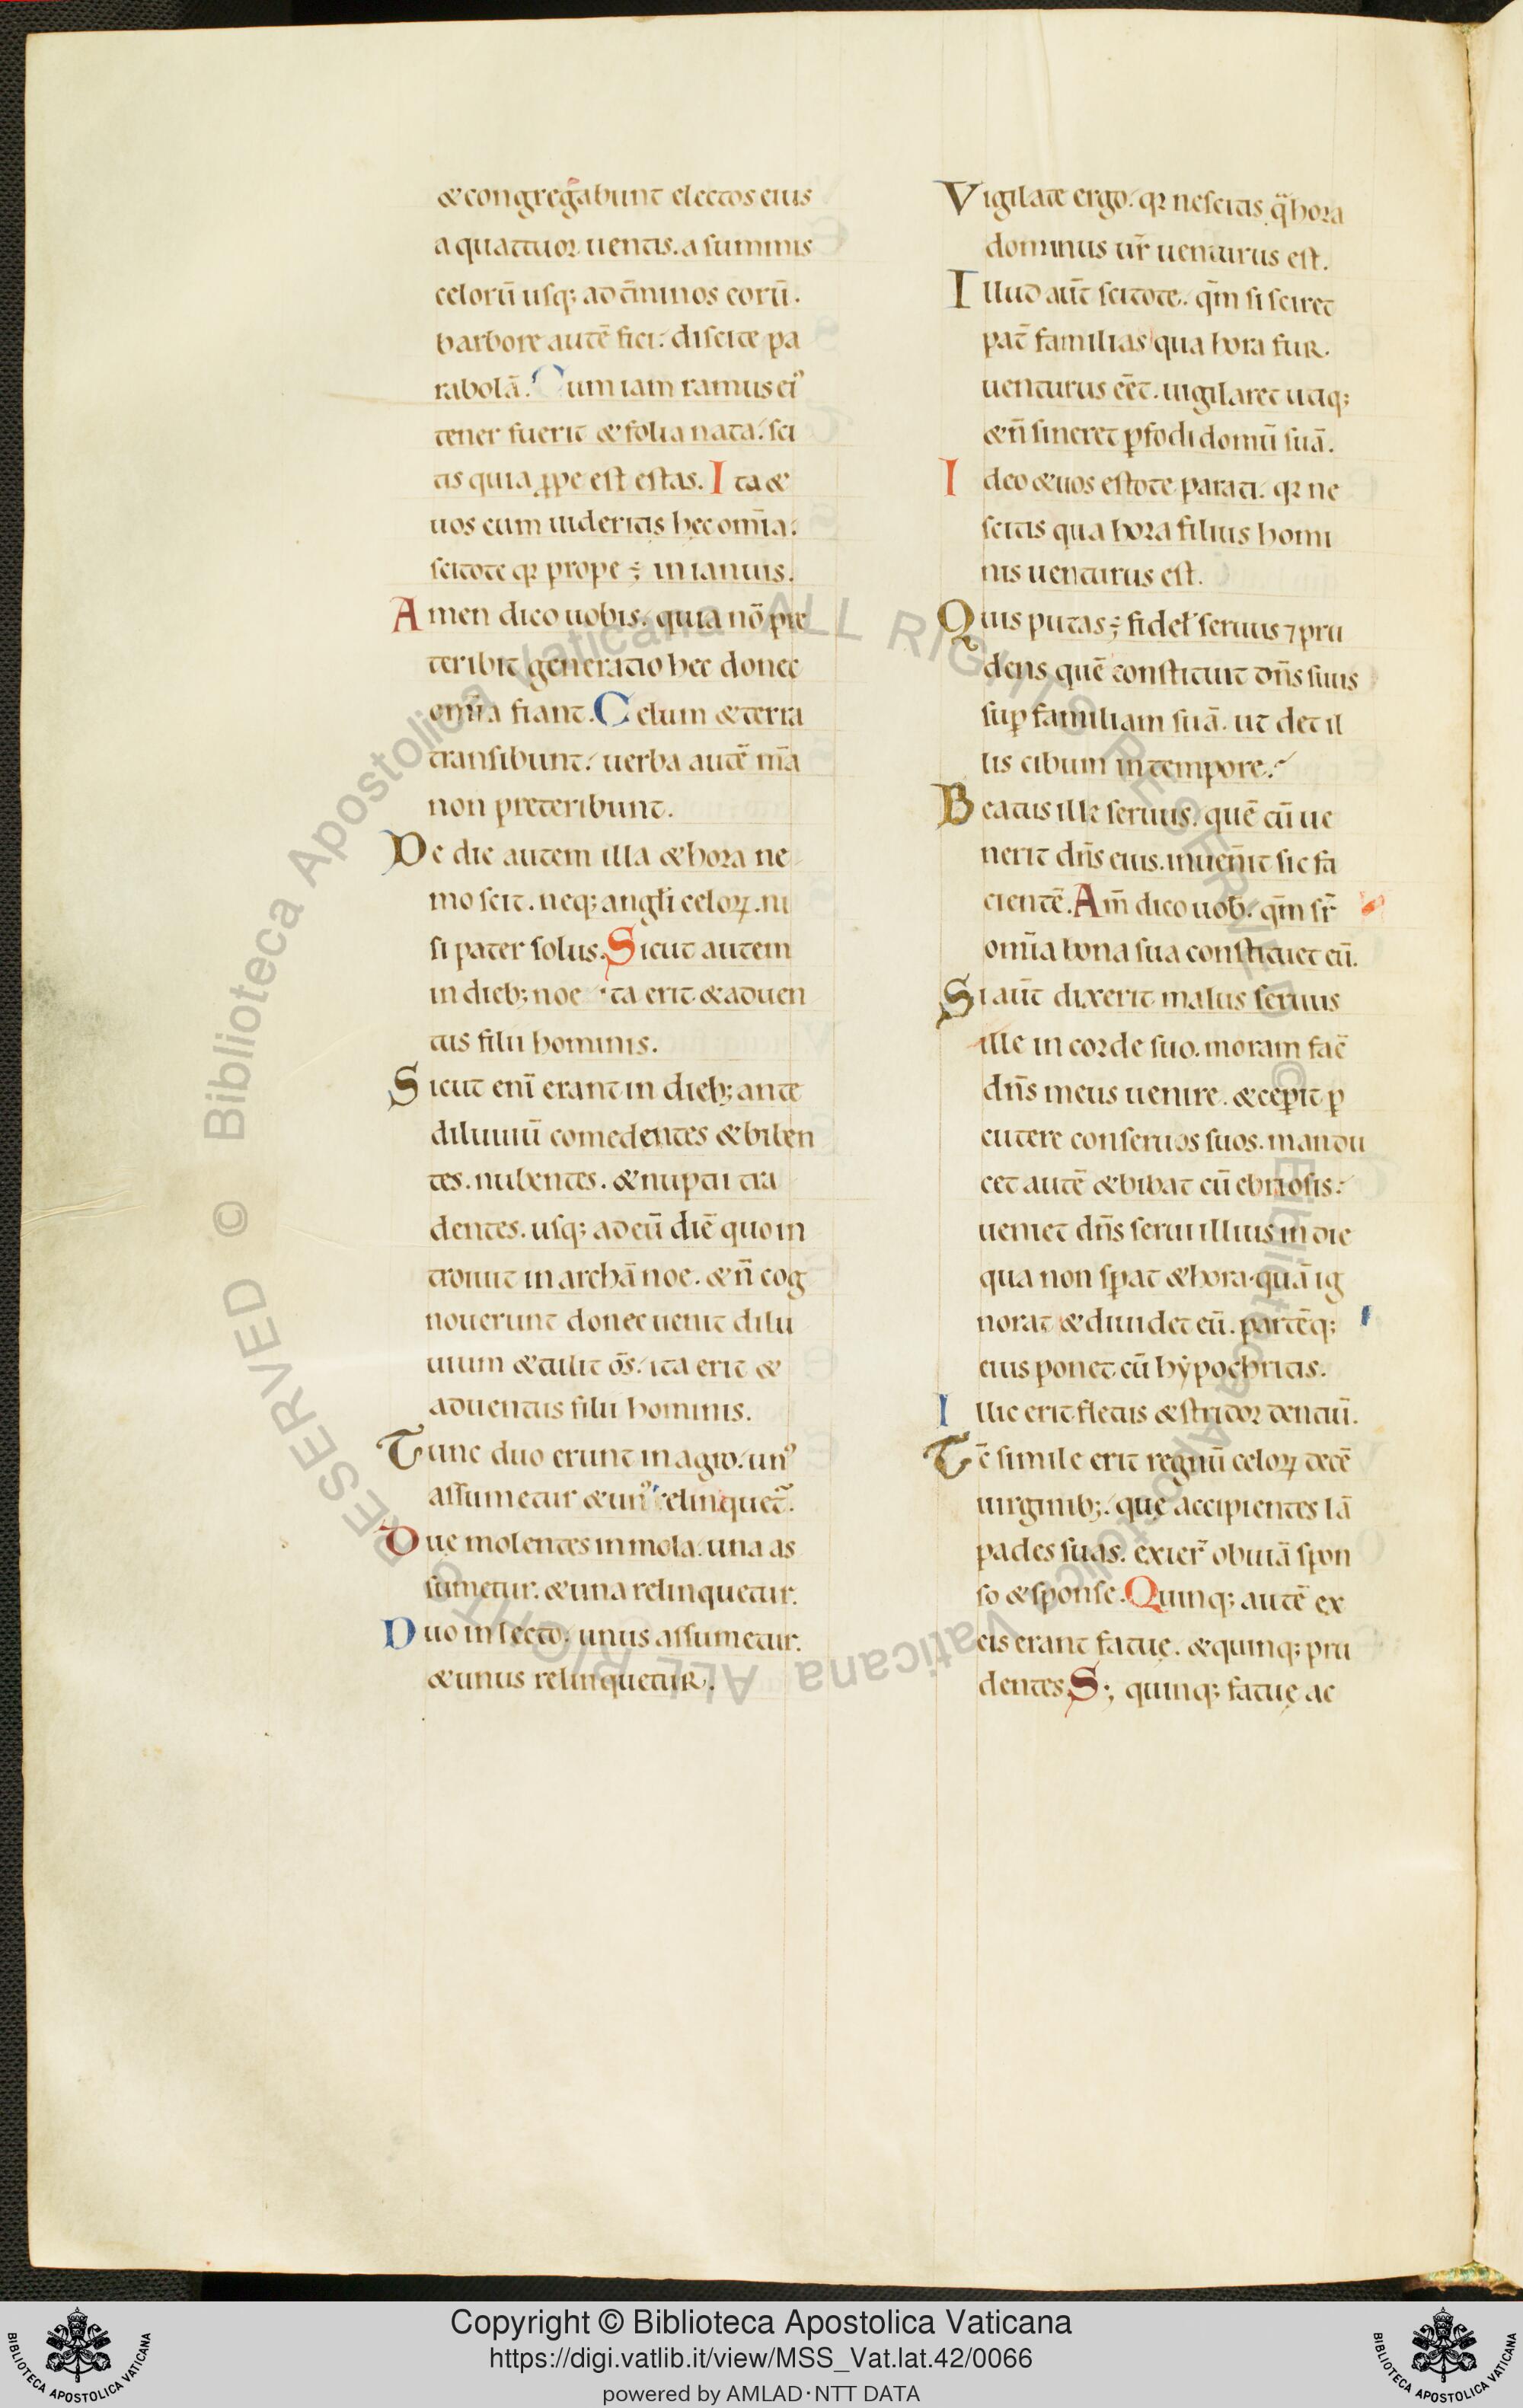 &congregabunt electos eius
a quattuor uentis. a summis
celorū usq; ad t̄minos eorū.
barbore autē fici: discite pa
rabolā. Cum iam ramus ei᾽
tener fuerit & folia nata: sci
tis quia ꝓpe est estas. Ita &
uos cum uideritis hec om̄ia:
scitote qꝛ prope ÷ in ianuis.
Amen dico uobis. quia nō pre
teribit generatio hec donec
om̄ia fiant. Celum & terra
transibunt: uerba autē m̄a
non preteribunt.
De die autem illa & hora ne
mo scit. neq; angłi celoꝝ. ni
si pater solus. Sicut autem
in dieb; noe ita erit & aduen
tus filii hominis.
Sicut enī erant in dieb; ante
diluuiū comedentes & biben
tes. nubentes. & nuptui tra
dentes. usq; ad eū diē quo in
trouit in archā noe. & n̄ cog
nouerunt donec uenit dilu
uium & tulit ōs: ita erit &
aduentus filii hominis.
Tunc duo erunt in agro. un᾽
assumetur & un᾽ relinquet᷑.
Due molentes in mola. una as
sumetur. & una relinquetur.
Duo in lecto: unus assumetur.
& unus relinquetur.
Vigilate ergo. qꝛ nescitis q̄ hora
dominus ur̄ uenturus est.
Illud aūt scitote. qm̄ si sciret
pat̄ familias qua hora fur
uenturus eēt. uigilaret utiq;
& n̄ sineret ꝑfodi domū suā.
Ideo & uos estote parati. qꝛ ne
scitis qua hora filius homi
nis uenturus est.
Quis putas ÷ fideł seruus ⁊ pru
dens quē constituit dn̄s suus
suꝑ familiam suā. ut det il
lis cibum in tempore:
Beatus ille seruus. quē cū ue
nerit dn̄s eius. inuen̄it sic fa
cientē. Am̄ dico uob. qm̄ sr̄
om̄ia bona sua constituet eū.
Si aūt dixerit malus seruus
ille in corde suo. moram fac̄
dn̄s meus uenire. & ceperit ꝑ
cutere conseruos suos. mandu
cet autē & bibat cū ebriosis:
ueniet dn̄s serui illius in die
qua non sꝑat & hora quā ig
norat & diuidet eū. partēq;
eius ponet cū hẏpochritis.
Illic erit fletus & stridor dentiū.
Tc̄ simile erit regnū celoꝝ decē
uirginib;. quę accipientes lā
pades suas. exier̄ obuiā spon
so & sponse. Quinq; autē ex
eis erant fatuę. & quinq; pru
dentes. S; quinq; fatuę ac
Copyright © Biblioteca Apostolica Vaticana
https://digi.vatlib.it/view/MSS_Vat.lat.42/0066
powered by AMLAD·NTT DATA
BIBLIOTECA APOSTOLICA VATICANA
BIBLIOTECA APOSTOLICA VATICANA
© Biblioteca Apostolica Vaticana ALL RIGHTS RESERVED © Biblioteca Apostolica Vaticana ALL RIGHTS RESERVED